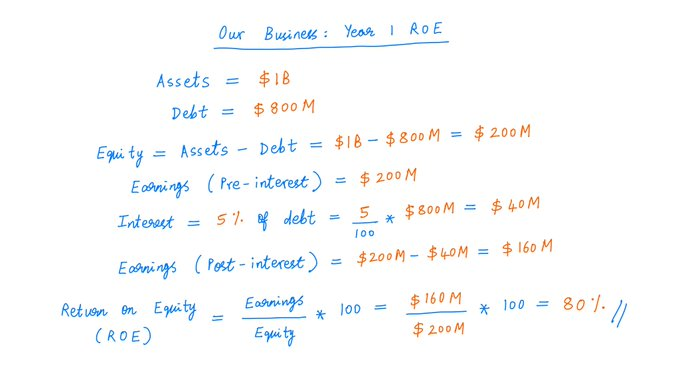 Our Business: Year 1 ROE
Assets = $1B
Debt = $800M
Equity = Assets - Debt = $1B - $800M = $200M
Earnings (Pre-interest) = $200M
Interest = 5% of debt = 5/100 * $800M = $40M
Earnings (Post-interest) = $200M - $40M = $160M
Return on Equity (ROE) = Earnings/Equity * 100 = $160M/$200M * 100 = 80% //